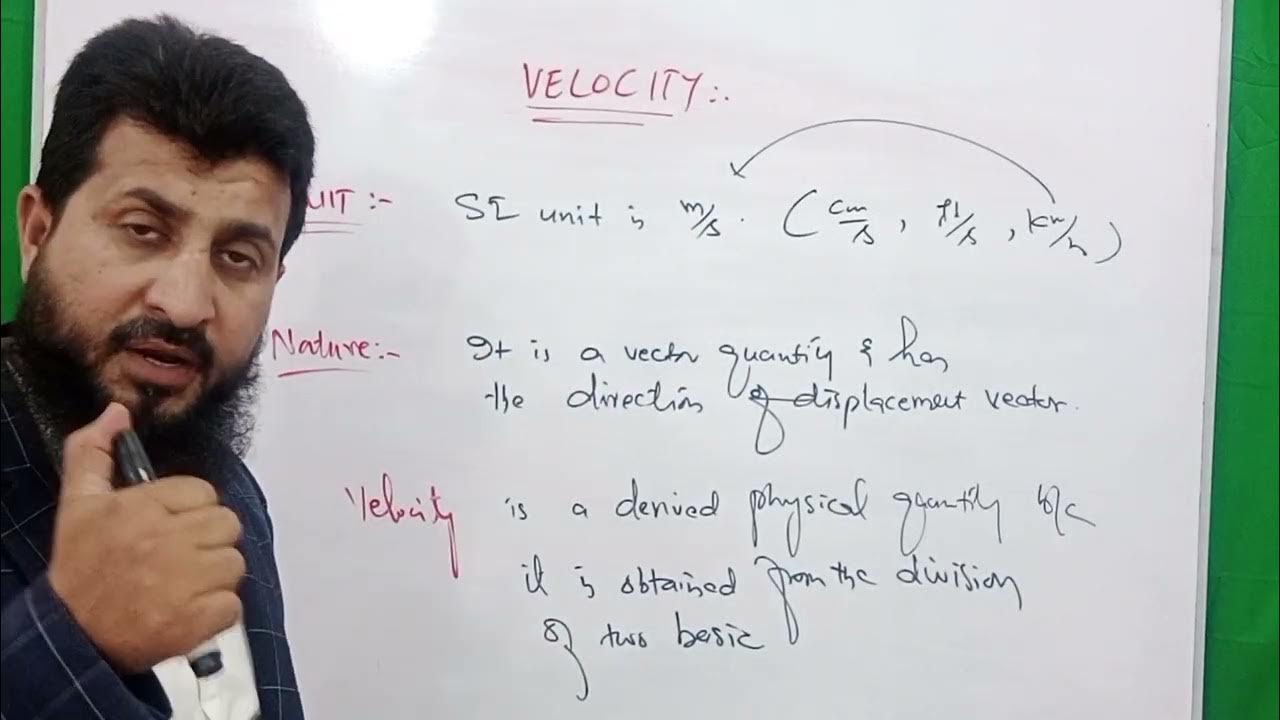 VELOCITY:.
UIT :- SI unit is m/s. (cm/s, ft/s, km/h)
Nature:- It is a vector quantity & has
the direction of displacement vector.
Velocity is a derived physical quantity b/c
it is obtained from the division
of two basic